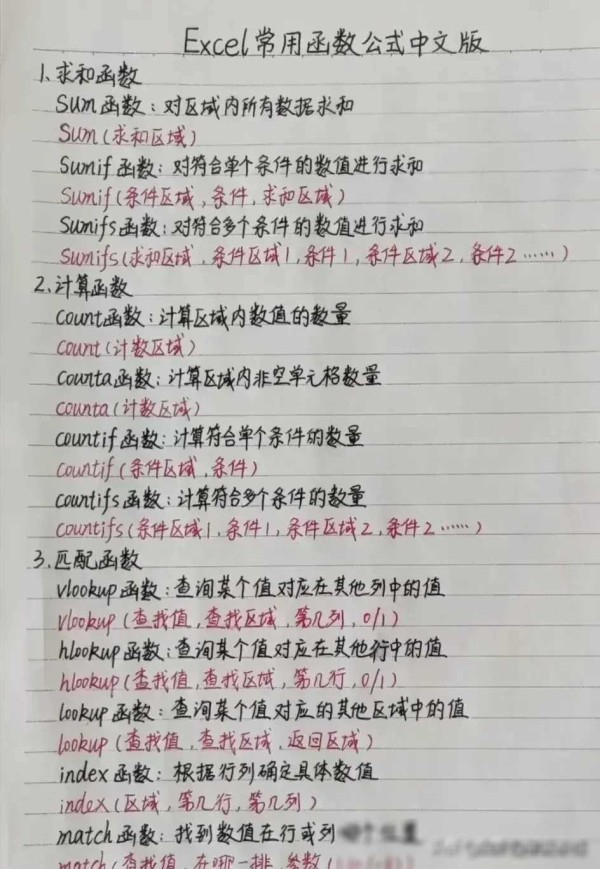 Excel常用函数公式中文版
1.求和函数
Sum函数：对区域内所有数据求和
Sum(求和区域)
Sumif函数：对符合单个条件的数值进行求和
Sumif(条件区域，条件，求和区域)
Sumifs函数：对符合多个条件的数值进行求和
Sumifs(求和区域，条件区域1，条件1，条件区域2，条件2……)
2.计算函数
count函数：计算区域内数值的数量
count(计数区域)
counta函数：计算区域内非空单元格数量
counta(计数区域)
countif函数：计算符合单个条件的数量
countif(条件区域，条件)
countifs函数：计算符合多个条件的数量
countifs(条件区域1，条件1，条件区域2，条件2……)
3.匹配函数
vlookup函数：查询某个值对应在其他列中的值
vlookup(查找值，查找区域，第几列，0/1)
hlookup函数：查询某个值对应在其他行中的值
hlookup(查找值，查找区域，第几行，0/1)
lookup函数：查询某个值对应的其他区域中的值
lookup(查找值，查找区域，返回区域)
index函数：根据行列确定具体数值
index(区域，第几行，第几列)
match函数：找到数值在行或列
match(查找值，在哪一排，参数(